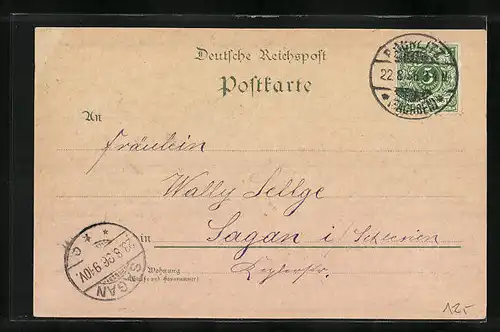 Deutsche Reichspost
Postkarte
22.8.98
5
(SACHSEN)
An
Fräulein
Wally Sellge
in Sagan i/Schlesien
Wohnung
(Straße und Hausnummer)
23.8.98 9-10V.
SAGAN
125